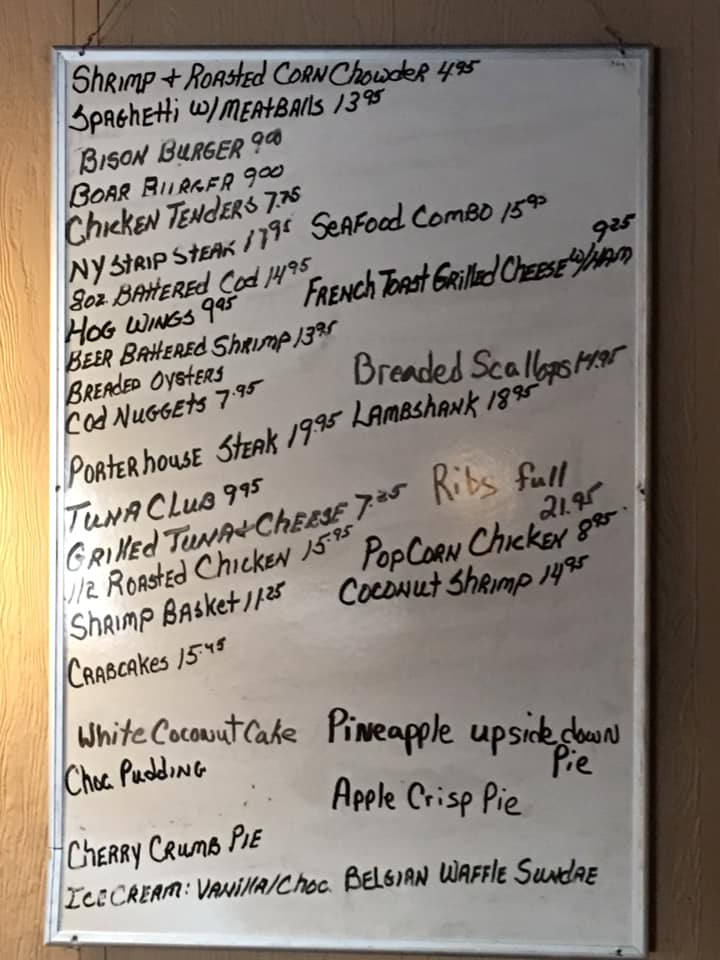 Shrimp + Roasted Corn Chowder 4.95
Spaghetti w/ Meatballs 13.95
Bison Burger 9.00
Boar Burger 9.00
Chicken Tenders 7.75
NY Strip Steak 17.95 Seafood Combo 15.95
8oz. Battered Cod 14.95 9.25
Hog Wings 9.95 French Toast Grilled Cheese w/ Ham
Beer Battered Shrimp 13.95
Breaded Oysters Breaded Scallops 14.95
Cod Nuggets 7.95
Porterhouse Steak 19.95 Lambshank 18.95
Tuna Club 9.95 Ribs full
Grilled Tuna + Cheese 7.25 21.95
1/2 Roasted Chicken 15.95 PopCorn Chicken 8.95
Shrimp Basket 11.25 Coconut Shrimp 14.95
Crabcakes 15.45
White Coconut Cake Pineapple upside down
Choc. Pudding Pie
Apple Crisp Pie
Cherry Crumb Pie
Ice Cream: Vanilla/Choc. Belgian Waffle Sundae